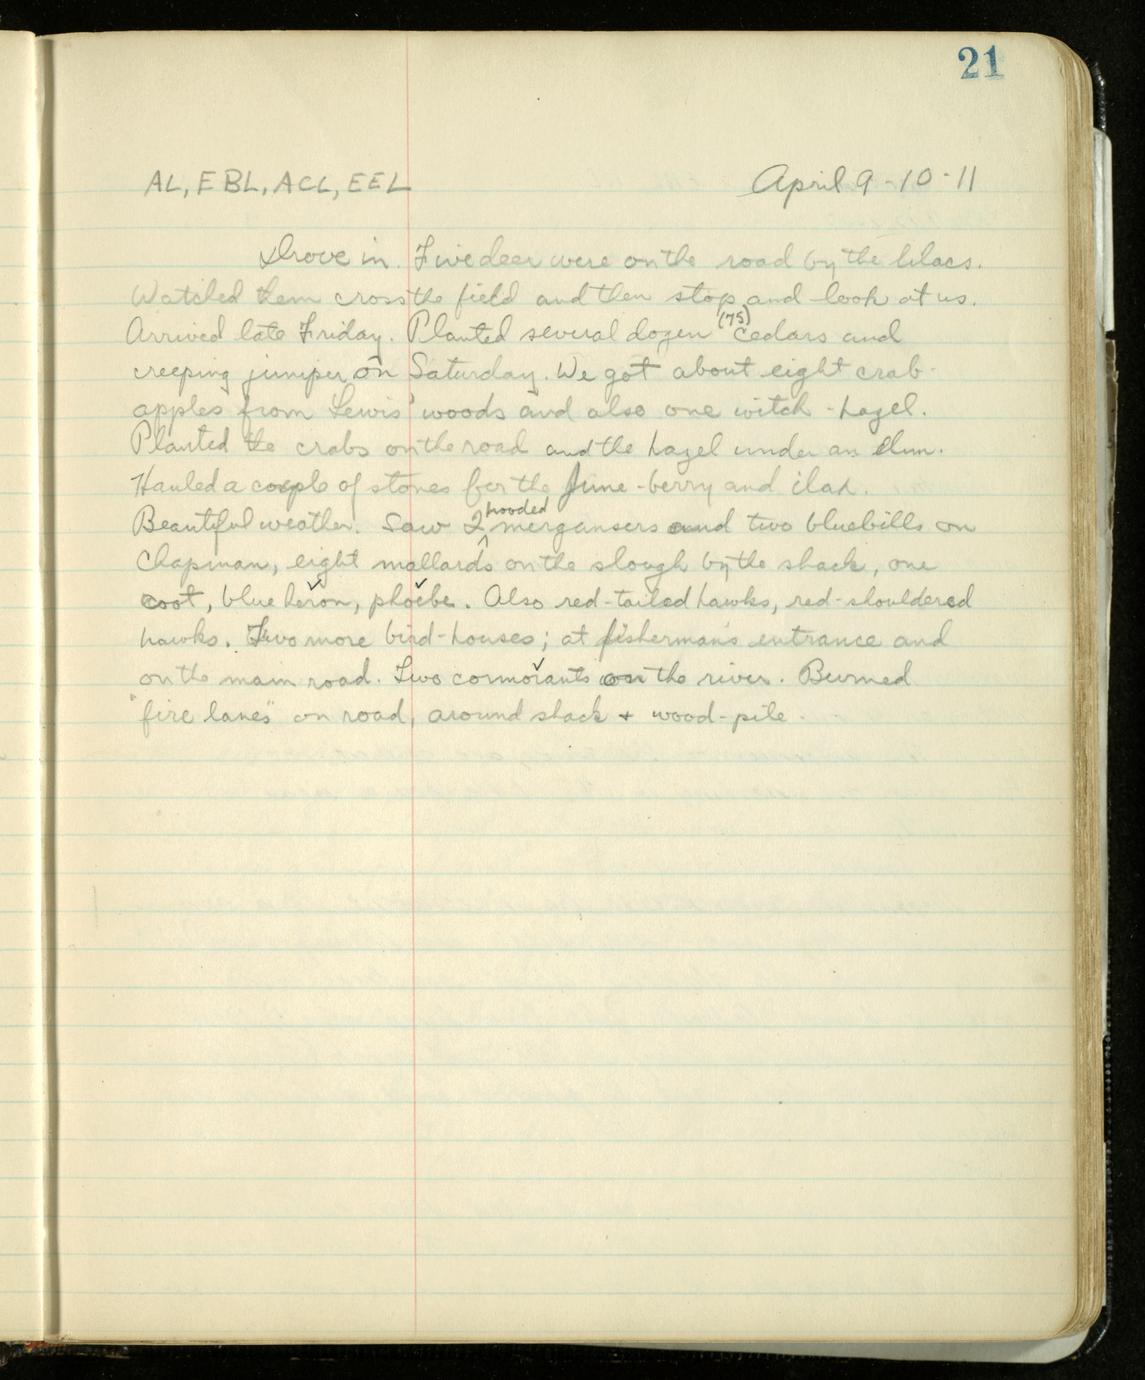 21
AL, EBL, ACL, EEL April 9-10-11
Drove in. Five deer were on the road by the lilacs.
Watched them cross the field and then stop and look at us.
Arrived late Friday. Planted several dozen (75) cedars and
creeping juniper on Saturday. We got about eight crab-
apples from Lewis' woods and also one witch-hazel.
Planted the crabs on the road and the hazel under an elm.
Hauled a couple of stones for the June-berry and ilax.
Beautiful weather. Saw 2 hooded mergansers and two bluebills on
Chapman, eight mallards on the slough by the shack, one
coot, blue heron, phoebe. Also red-tailed hawks, red-shouldered
hawks. Two more bird-houses; at fisherman's entrance and
on the main road. Two cormorants on the river. Burned
"fire lanes" on road, around shack + wood-pile.